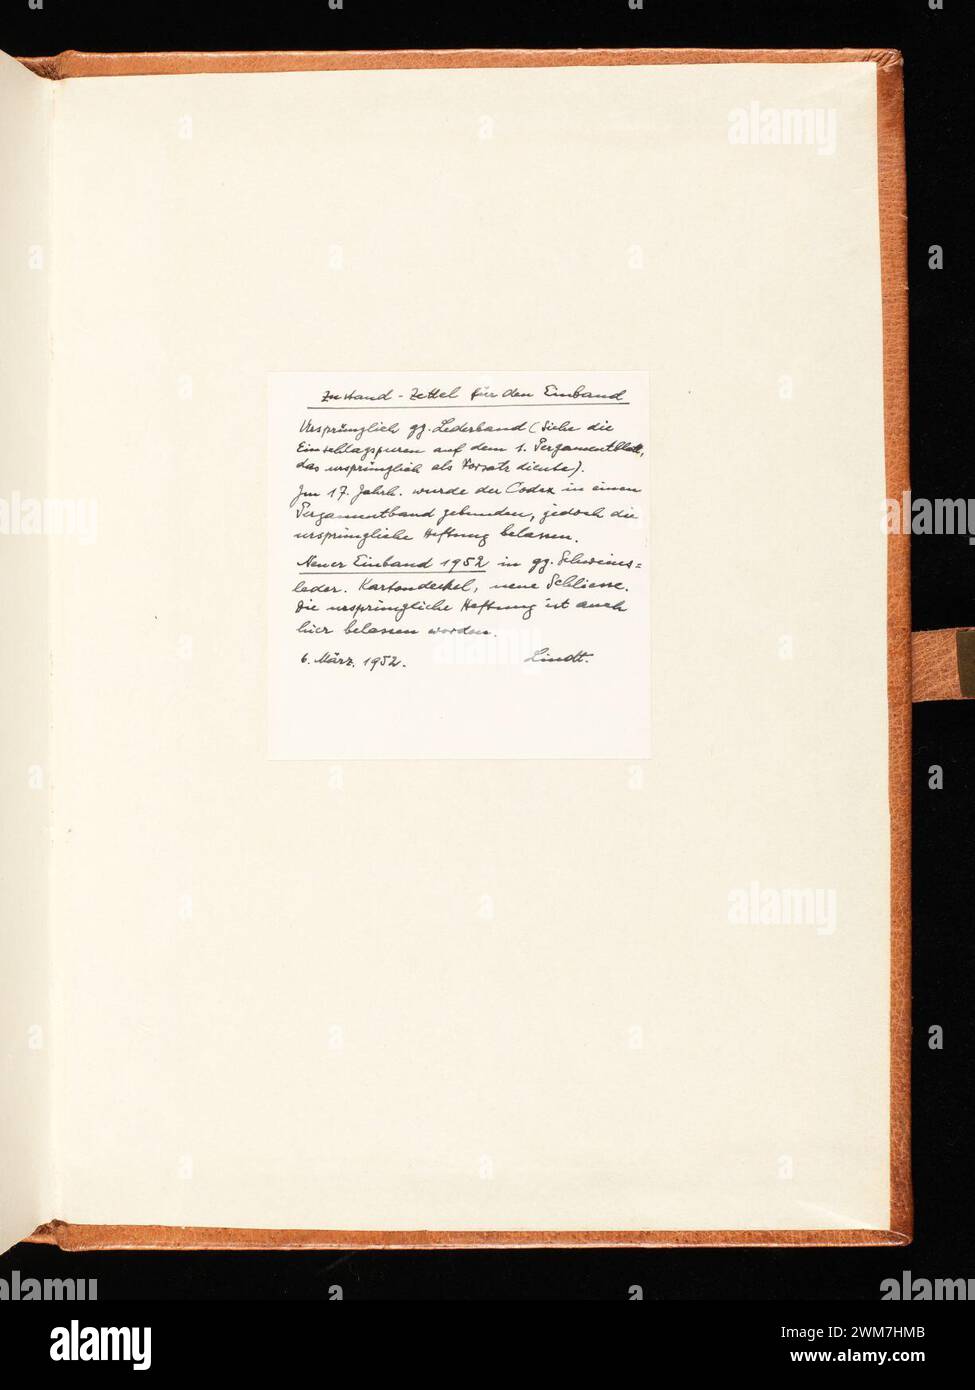 Zustand - Zettel für den Einband
Ursprünglich gz. Lederband (Siehe die
Einschlagspuren auf dem 1. Pergamentblatt,
das ursprünglich als Vorsatz diente).
Im 17. Jahrh. wurde der Codex in einen
Pergamentband gebunden, jedoch die
ursprüngliche Heftung belassen.
Neuer Einband 1952 in gz. Schweins=
leder. Kartondeckel, neue Schliesse.
Die ursprüngliche Heftung ist auch
hier belassen worden.
6. März. 1952. Lindt.
alamy
Image ID: 2WM7HMB
www.alamy.com